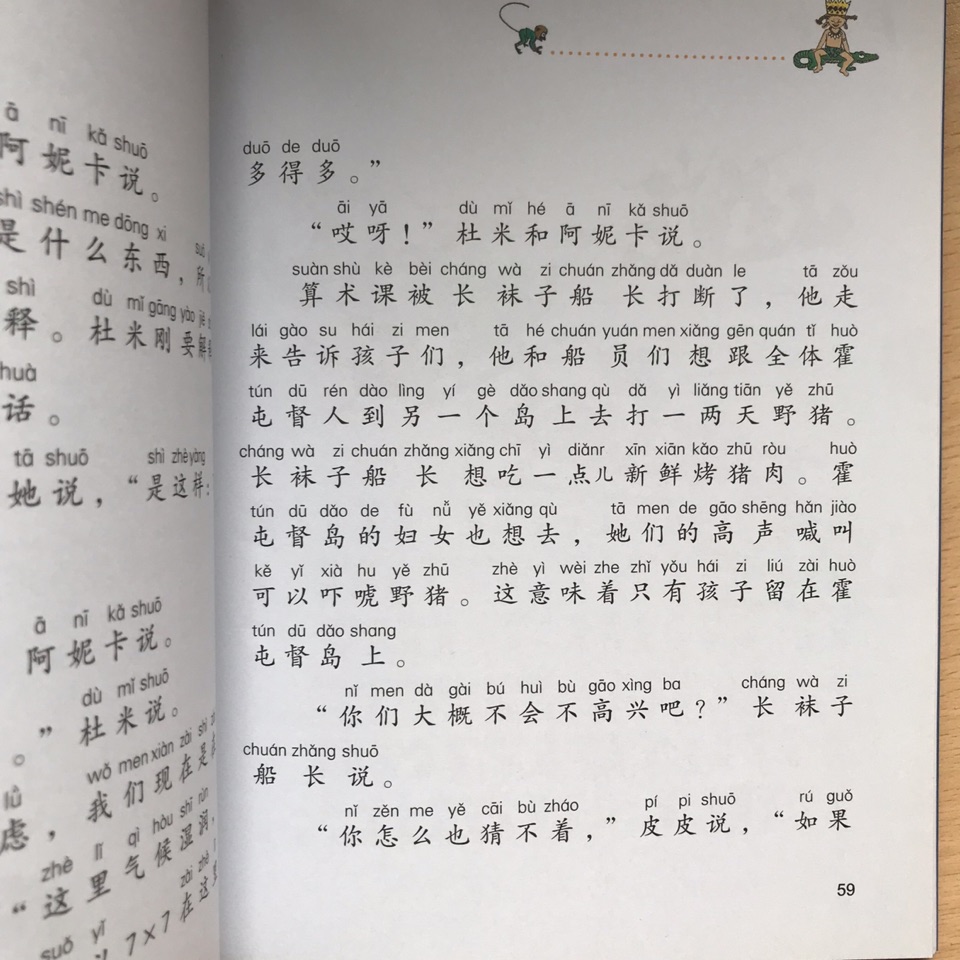 ā nī kǎ shuō
阿妮卡说。
shì shén me dōng xi
是什么东西，所
shì dù mǐ gāng yào jiě
释。杜米刚要解
huà
话。
tā shuō shì zhè yàng
她说，“是这样：
ā nī kǎ shuō
阿妮卡说。
dù mǐ shuō
。”杜米说。
lǜ wǒ men xiàn zài shì
虑，我们现在是
zhè lǐ qì hòu shī rùn
“这里气候湿润，
suǒ yǐ zài zhè
以7×7在这里
duō de duō
多得多。”
āi yā dù mǐ hé ā nī kǎ shuō
“哎呀！”杜米和阿妮卡说。
suàn shù kè bèi cháng wà zi chuán zhǎng dǎ duàn le tā zǒu
算术课被长袜子船长打断了，他走
lái gào su hái zi men tā hé chuán yuán men xiǎng gēn quán tǐ huò
来告诉孩子们，他和船员们想跟全体霍
tún dū rén dào lìng yí gè dǎo shang qù dǎ yì liǎng tiān yě zhū
屯督人到另一个岛上去打一两天野猪。
cháng wà zi chuán zhǎng xiǎng chī yì diǎnr xīn xiān kǎo zhū ròu huò
长袜子船长想吃一点儿新鲜烤猪肉。霍
tún dū dǎo de fù nǚ yě xiǎng qù tā men de gāo shēng hǎn jiào
屯督岛的妇女也想去，她们的高声喊叫
kě yǐ xià hu yě zhū zhè yì wèi zhe zhǐ yǒu hái zi liú zài huò
可以吓唬野猪。这意味着只有孩子留在霍
tún dū dǎo shang
屯督岛上。
nǐ men dà gài bú huì bù gāo xìng ba cháng wà zi
“你们大概不会不高兴吧？”长袜子
chuán zhǎng shuō
船长说。
nǐ zěn me yě cāi bù zháo pí pi shuō rú guǒ
“你怎么也猜不着，”皮皮说，“如果
59